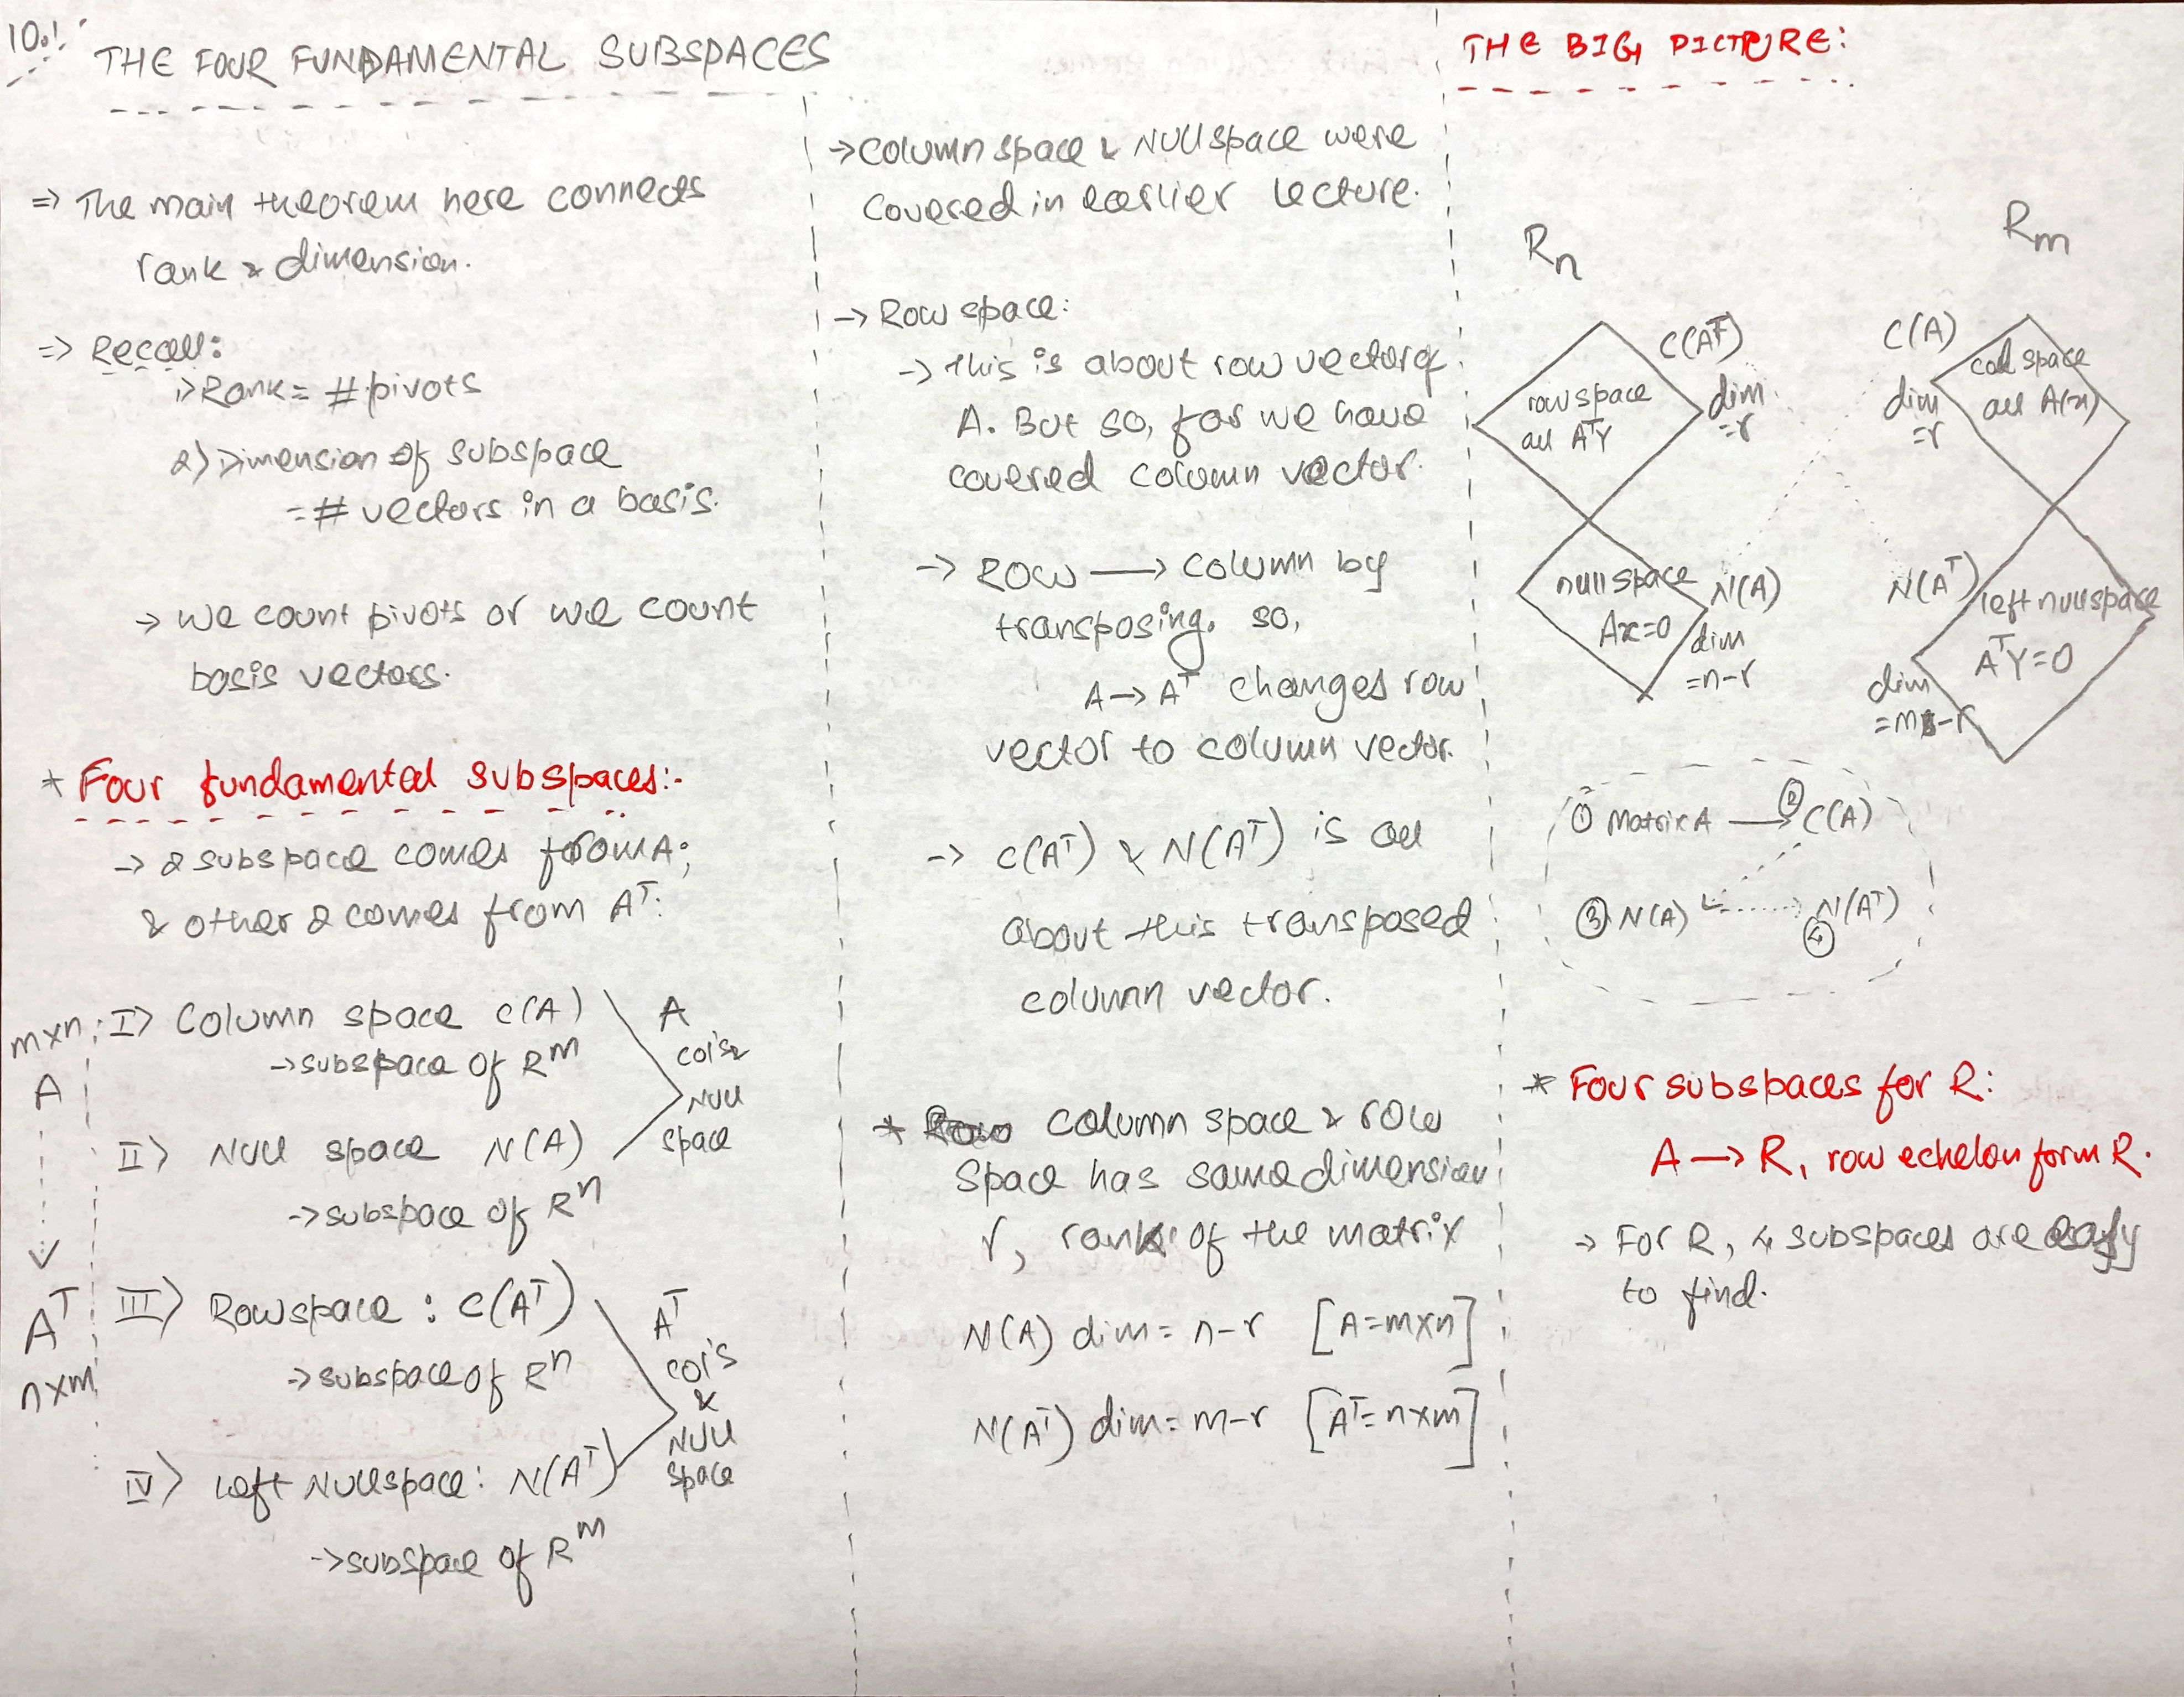 10.!
THE FOUR FUNDAMENTAL SUBSPACES
=> The main theorem here connects
rank & dimension.
=> Recall:
1> Rank = # pivots
2) Dimension of subspace
= # vectors in a basis.
-> We count pivots or we count
basis vectors.
* Four fundamental subspaces:-
-> 2 subspace comes from A;
& other 2 comes from Aᵀ.
mxn
A
Aᵀ
nxm
I> Column space C(A)
-> subspace of Rᵐ
II> Null space N(A)
-> subspace of Rⁿ
A
col's &
Null
space
III> Rowspace : C(Aᵀ)
-> subspace of Rⁿ
IV> Left Nullspace: N(Aᵀ)
-> subspace of Rᵐ
Aᵀ
col's
&
Null
space
-> Column space & Nullspace were
covered in earlier lecture.
-> Row space:
-> This is about row vector of
A. But so, far we have
covered column vector.
-> Row —> column by
transposing. so,
A -> Aᵀ changes row
vector to column vector.
-> C(Aᵀ) & N(Aᵀ) is all
about this transposed
column vector.
* column space & row
space has same dimension
r, rank of the matrix
N(A) dim = n-r [A=mxn]
N(Aᵀ) dim = m-r [Aᵀ=nxm]
THE BIG PICTURE:
Rn
Rm
row space
all AᵀY
C(Aᵀ)
dim
=r
C(A)
dim
=r
col space
all A(x)
null space
Ax=0
N(A)
dim
=n-r
N(Aᵀ)
dim
=m-r
left nullspace
AᵀY=0
① Matrix A —> ② C(A)
③ N(A) ④ N(Aᵀ)
* Four subspaces for R:
A -> R, row echelon form R.
-> For R, 4 subspaces are easy
to find.